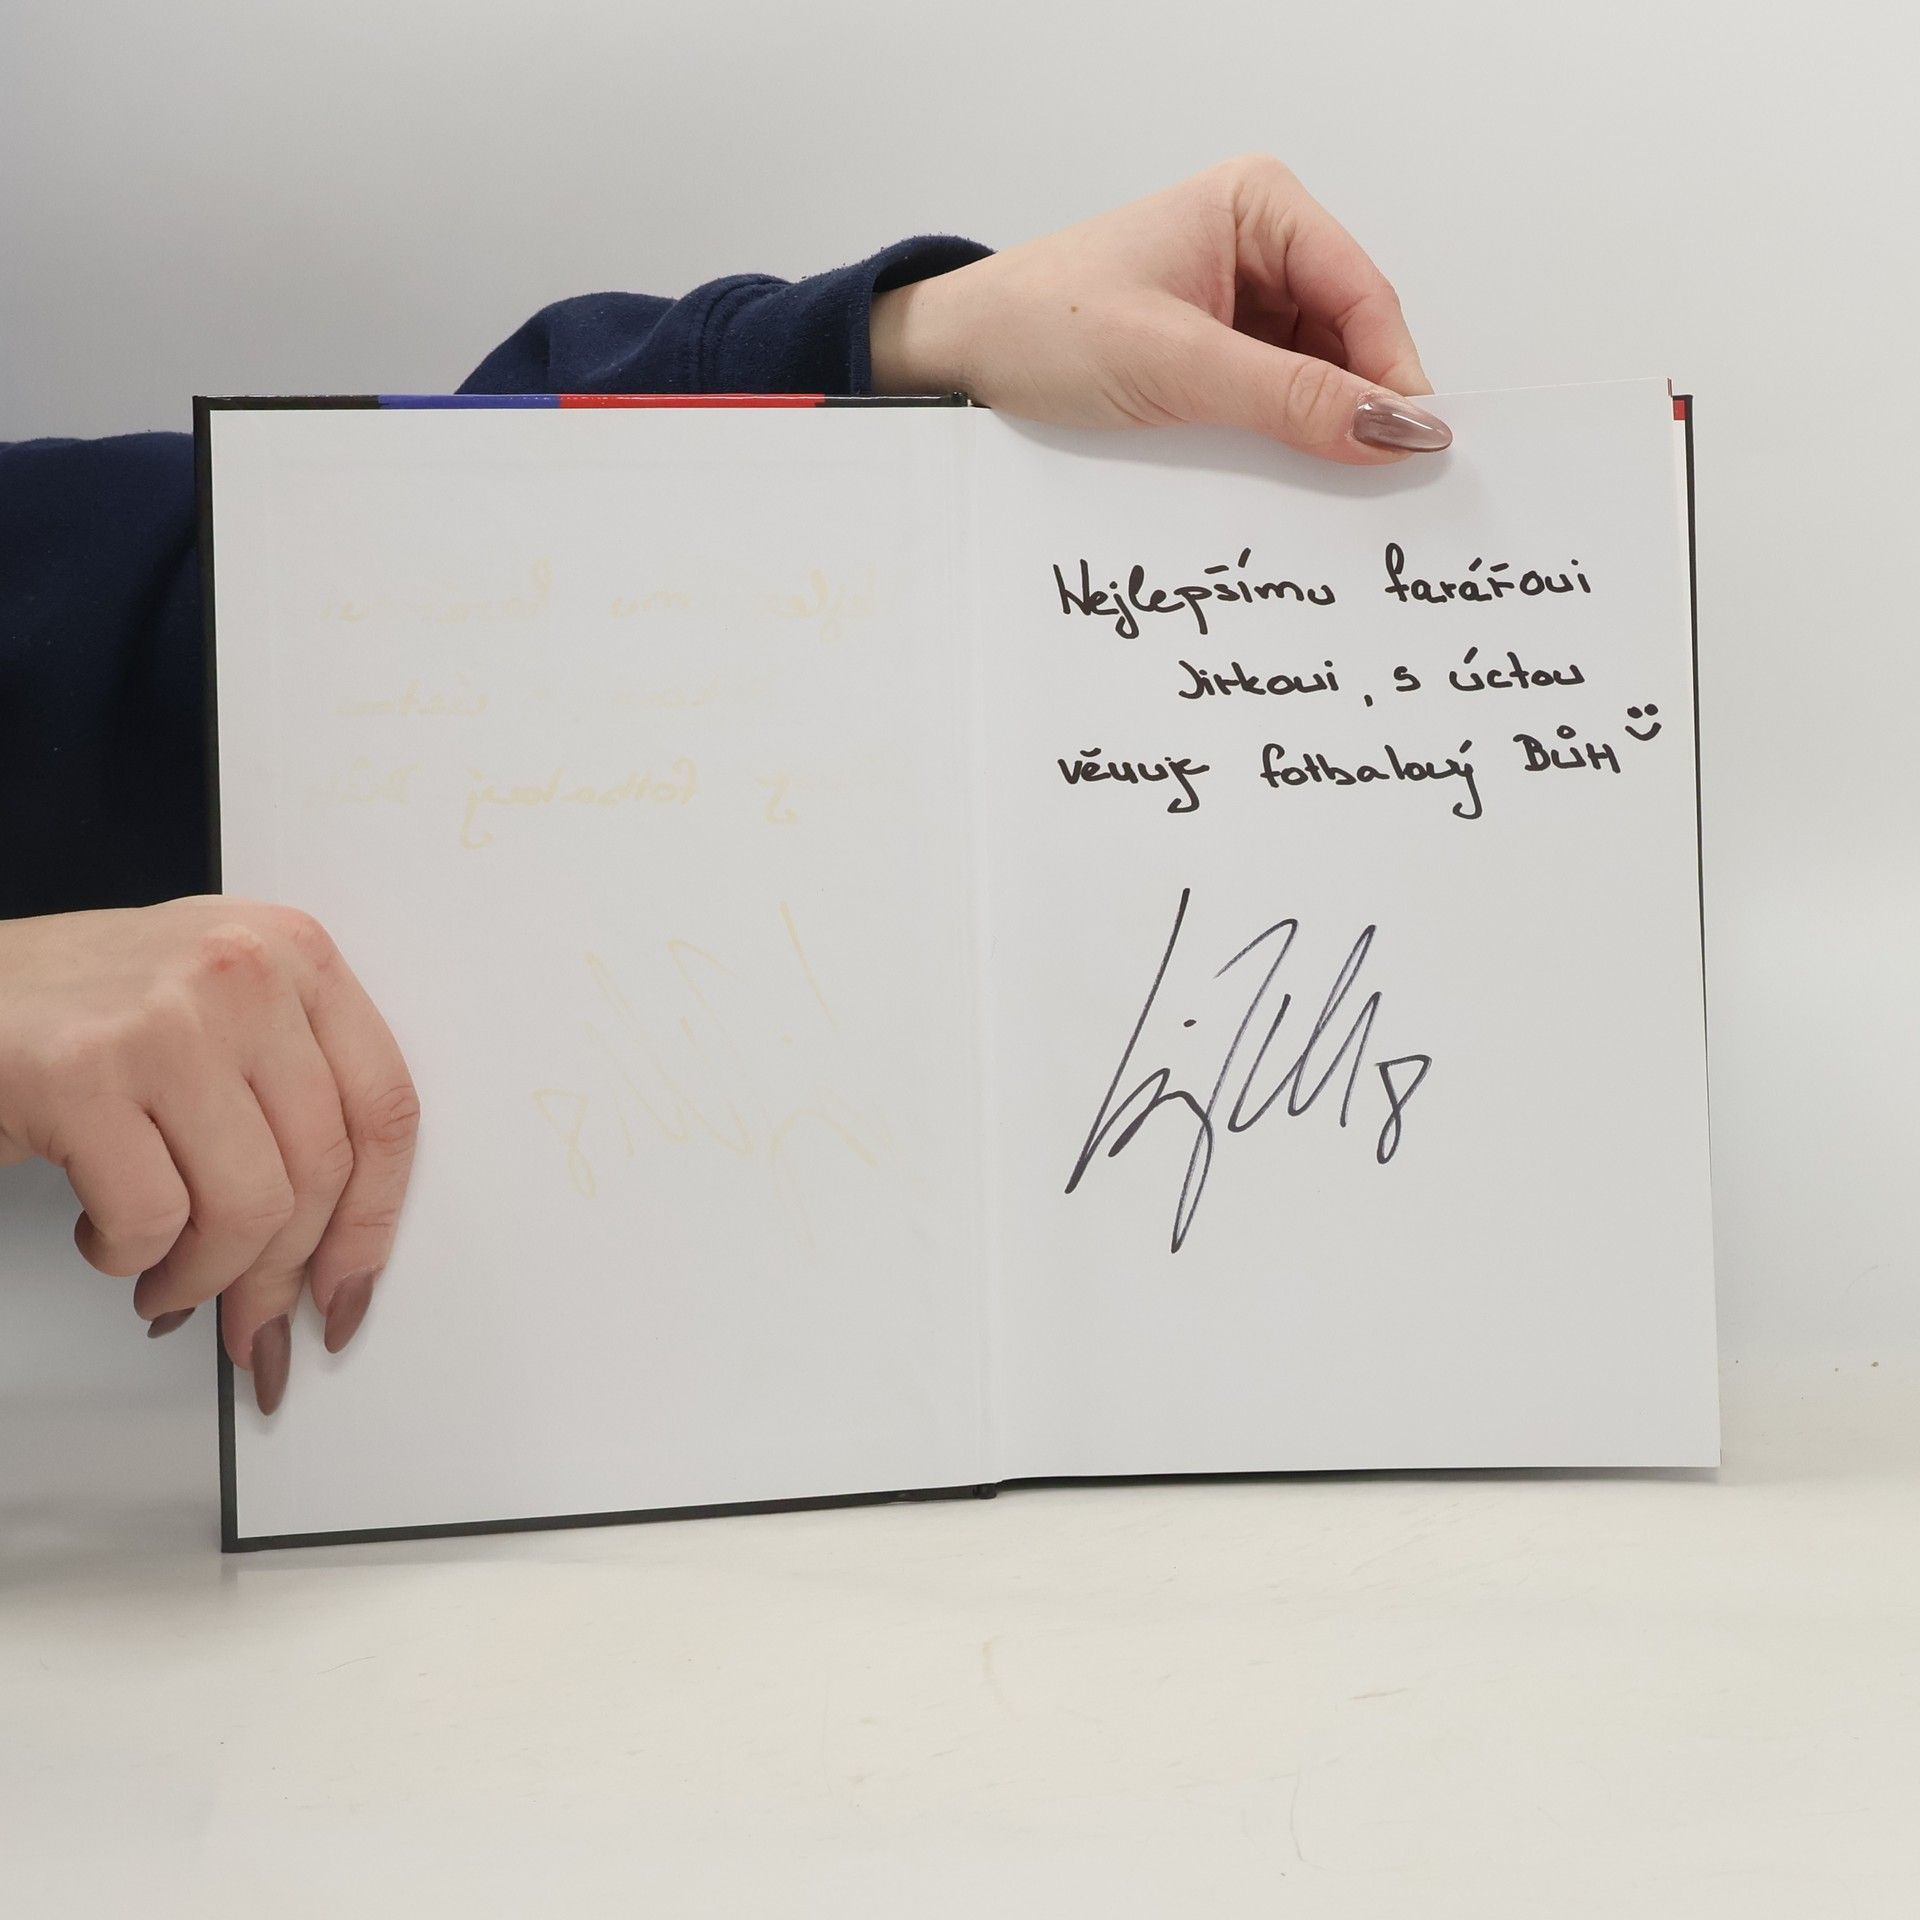 Nejlepšímu farářovi
Jirkovi, s úctou
věnuje fotbalový BŮH